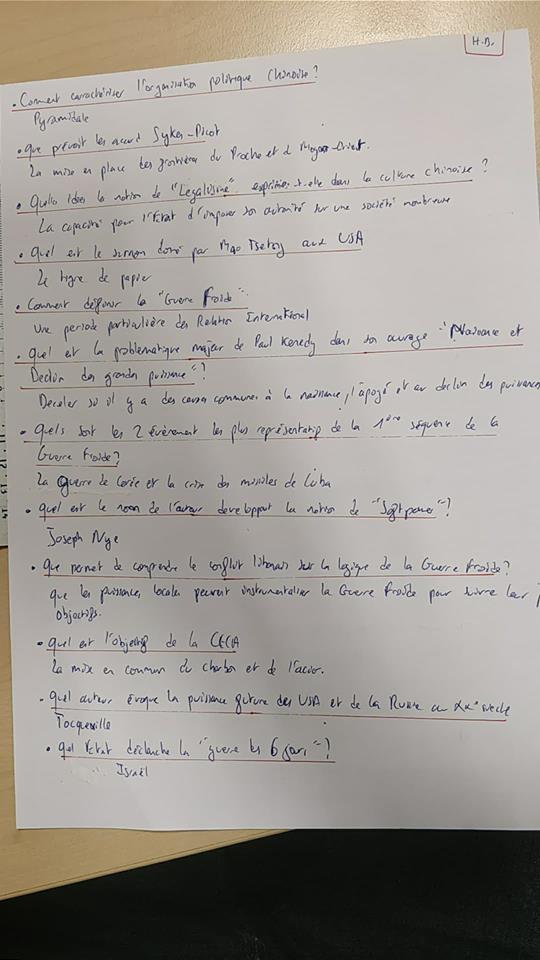 H.B.
• Comment caractériser l'organisation politique Chinoise?
Pyramidale
• Que prévoit les accord Sykes-Picot
La mise en place des frontières du Proche et d Moyen-Orient.
• Quelle idée la notion de "Légalisme" exprime-t-elle dans la culture chinoise?
La capacité pour l'Etat d'imposer son autorité sur une société nombreuse
• Quel est le surnom donné par Mao Tsetong aux USA
Le tigre de papier
• Comment définir la "Guerre Froide".
Une période particulière des Relation International
• Quel est la problématique majeur de Paul Kenedy dans son ouvrage "Naissance et
Déclin des grandes puissance"?
Déceler si il y a des causes communes à la naissance, l'apogé et au déclin des puissances
• Quels sont les 2 évènement les plus représentatif de la 1ère séquence de la
Guerre Froide?
La Guerre de Corée et la crise des missiles de Cuba
• Quel est le nom de l'auteur developpant la notion de "Softpower"?
Joseph Nye
• Que permet de comprendre le conflit libanais sur la logique de la Guerre Froide?
que les puissances locales peuvent instrumentaliser la Guerre Froide pour suivre leur
objectifs.
• Quel est l'objectif de la CECA
La mise en commun du charbon et de l'acier.
• Quel auteur évoque la puissance future des USA et de la Russie au XXe siècle
Tocqueville
• Quel Etat déclanche la "guerre des 6 jours"?
Israël